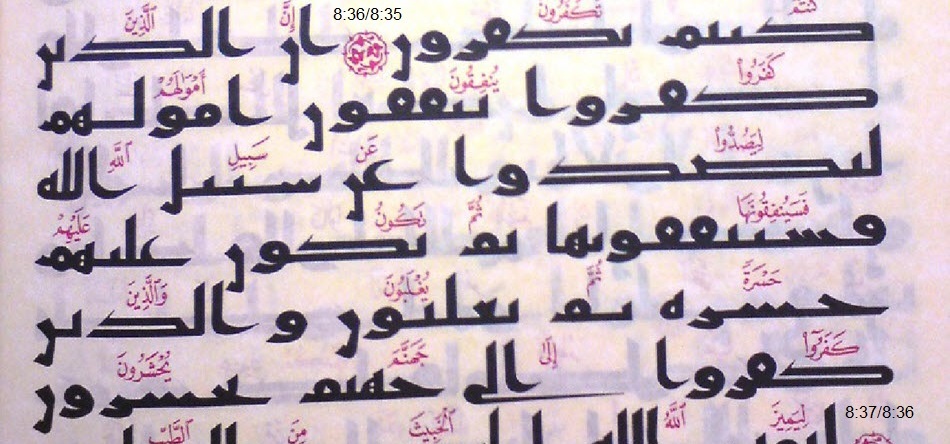 8:36/8:35
كُنتُمْ تَكْفُرُونَ إِنَّ ٱلَّذِينَ
كنتم تكفرون ان الذين
كَفَرُوا۟ يُنفِقُونَ أَمْوَٰلَهُمْ
كفروا ينفقون امولهم
لِيَصُدُّوا۟ عَن سَبِيلِ ٱللَّهِ
ليصدوا عن سبيل الله
فَسَيُنفِقُونَهَا ثُمَّ تَكُونُ عَلَيْهِمْ
فسينفقونها ثم تكون عليهم
حَسْرَةً ثُمَّ يُغْلَبُونَ وَٱلَّذِينَ
حسرة ثم يغلبون والذين
كَفَرُوٓا۟ إِلَىٰ جَهَنَّمَ يُحْشَرُونَ
كفروا الى جهنم يحشرون
8:37/8:36
لِيَمِيزَ ٱللَّهُ ٱلْخَبِيثَ مِنَ ٱلطَّيِّبِ